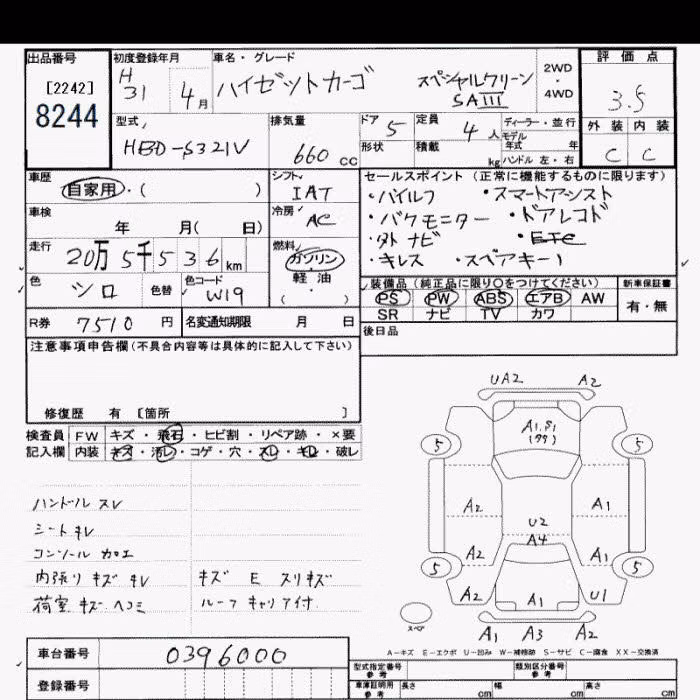 出品番号
[2242]
8244
初度登録年月
H
31 4月
車名・グレード
ハイゼットカーゴ
スペシャルクリーン
SAIII
2WD
・
4WD
評価点
3.5
外装 内装
C C
型式
HBD-S321V
排気量
660 cc
ドア 5
形状
定員
4人
積載
kg
ディーラー・並行
モデル
年式 年
ハンドル 左・右
車歴
自家用・( )
車検
年 月( 日)
走行
20万5千536km
色
シロ
色替
色コード
W19
シフト
IAT
冷房
AC
燃料
ガソリン
・
軽油
( )
セールスポイント(正常に機能するものに限ります)
・パイルフ ・スマートアシスト
・バクモニター ・ドアレコド
・外ナビ ・ETC
・キレス ・スペアキー1
装備品(純正品に限り○をつけてください)
PS PW ABS エアB AW
SR ナビ TV カワ
新車保証書
有・無
後日品
R券 7510円
名変通知期限 月 日
注意事項申告欄(不具合内容等は具体的に記入して下さい)
修復歴 有 [箇所 ]
検査員
記入欄
FW キズ・飛石・ヒビ割・リペア跡・×要
内装 キズ・汚レ・コゲ・穴・スレ・キレ・破レ
ハンドル スレ
シート キレ
コンソール カロエ
内張り キズ キレ
荷室 キズ ヘコミ
キズ E スリキズ
ルーフ キャリア付
UA2 A2
A1.S1
(77)
5 5
A2 A1
U2
A4
A2 A1
5 5
A2 A1 U1
スペア
A1 A3 A2
A-キズ E-エクボ U-凹み W-補修跡 S-サビ C-腐食 XX-交換済
車台番号
0396000
登録番号
型式指定番号
参考
類別区分番号
参考
車庫証明用
参考
長さ cm
幅 cm
高さ cm